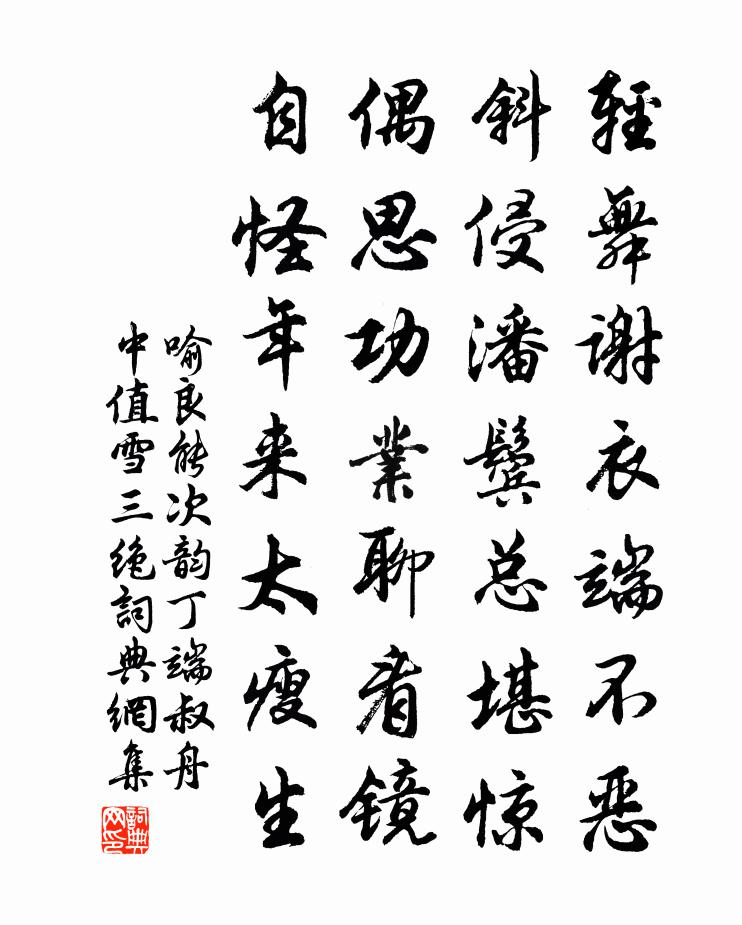 輕舞謝衣端不惡
斜侵潘鬓总堪惊
偶思功業聊看镜
自怪年来太瘦生
喻良能次韵丁端叔舟
中值雪三绝詞典網集
詞典
网印